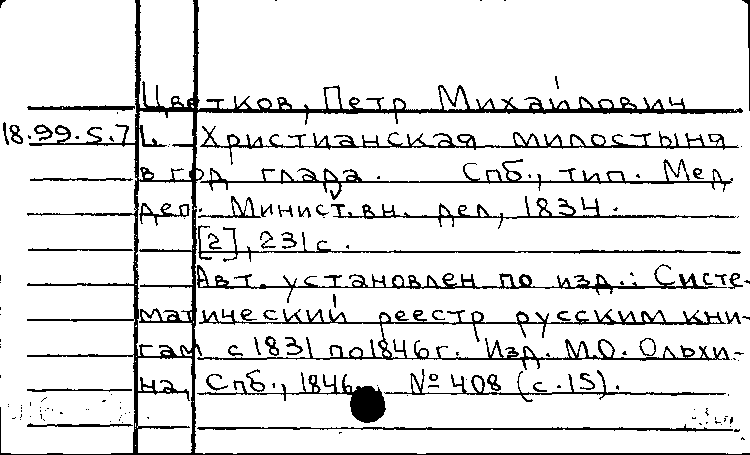 Цветков, Петр Михайлович
18.99.5.7 1. Христианская милостыня
в год глада. Спб., тип. Мед.
деп. Минист. вн. дел, 1834.
[2], 231 с.
Авт. установлен по изд.: Систе-
матический реестр русским кни-
гам с 1831 по 1846 г. Изд. М.О. Ольхи-
на, Спб., 1846. № 408 (с. 15).